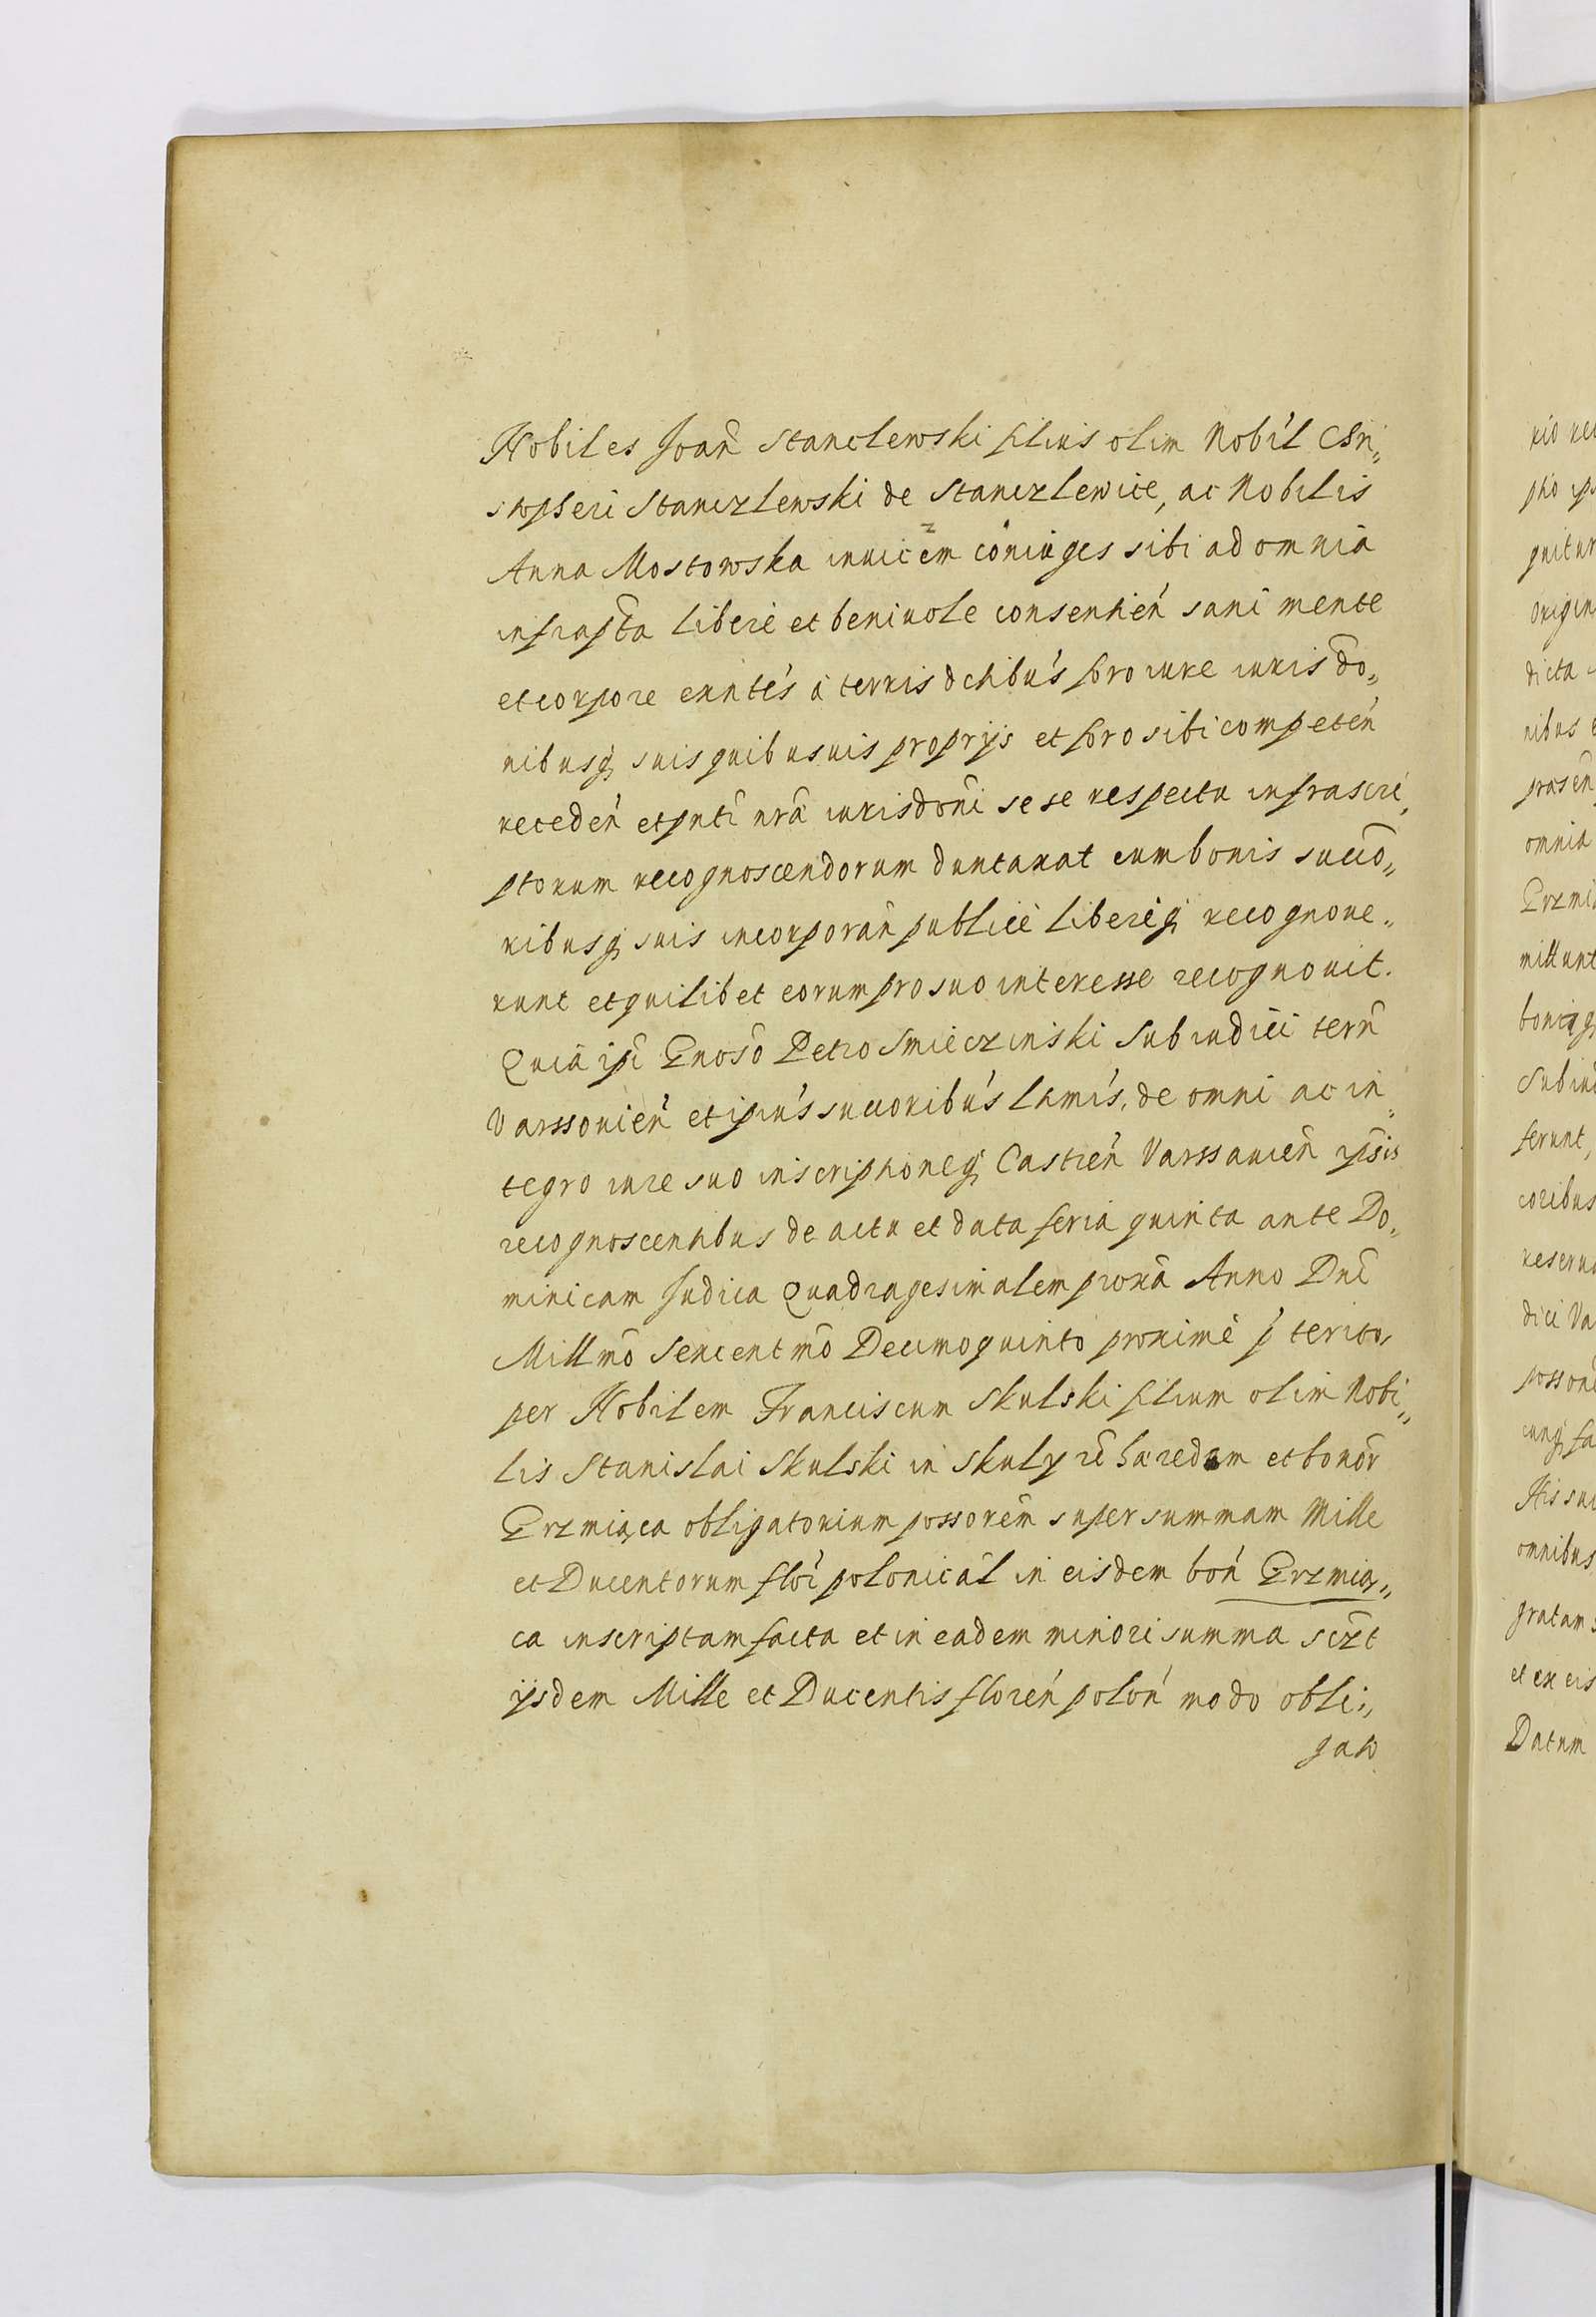 Nobiles Joan̄ Stanclewski filius olim Nobil Chri„
stopheri Stanczlewski de Stanczlewice, ac Nobilis
Anna Mostowska inuicem coniuges sibi ad omnia
infrapta libere et beniuole consentień sani mente
et corpore exn̄tes á terris dctibus foro iure iurisdo„
nibusq suis quibusuis proprijs et foro sibi competeń
recedeń et pnti nrā iurisdōni sese respectu infrascri,
ptorum recognoscendorum duntaxat cum bonis succo„
ribusq suis incorporań publicè liberèq recognoue„
runt et quilibet eorum pro suo interesse recognouit.
Quia ipi Gnōso Petro Smieczinski Subiudici terrn̄
Varssouień et ipius succoribus ltmis, de omni ac in„
tegro iure suo inscriptioneq Castreń Varssauień ipsis
recognoscentibus de actu et data feria quinta ante Do„
minicam Judica Quadragesimalem proxā Anno Dnī
Millmō Sexcentmō Decimoquinto proximè p̄terito,
per Nobilem Franciscum Skulski filium olim Nobi„
lis Stanislai Skulski in Skuly hæredem et bonor̄
Grzmiąca obligatorium possorem̄ super summam Mille
et Ducentorum flor̄ polonical in eisdem boń Grzmią„
ca inscriptam facta et in eadem minori summa sczt
ijsdem Mille et Ducentis floreń poloń modo obli„
gato
rio rec
ptio ips
guitur
origin
dicta
nibus e
præseń
omnia
Grzmią
mittunt
bonisq
Subiud
ferunt,
coribus
reserua
dici Va
possoni
cunq fa
His sui
omnibus
gratam s
et ex eis
Datum